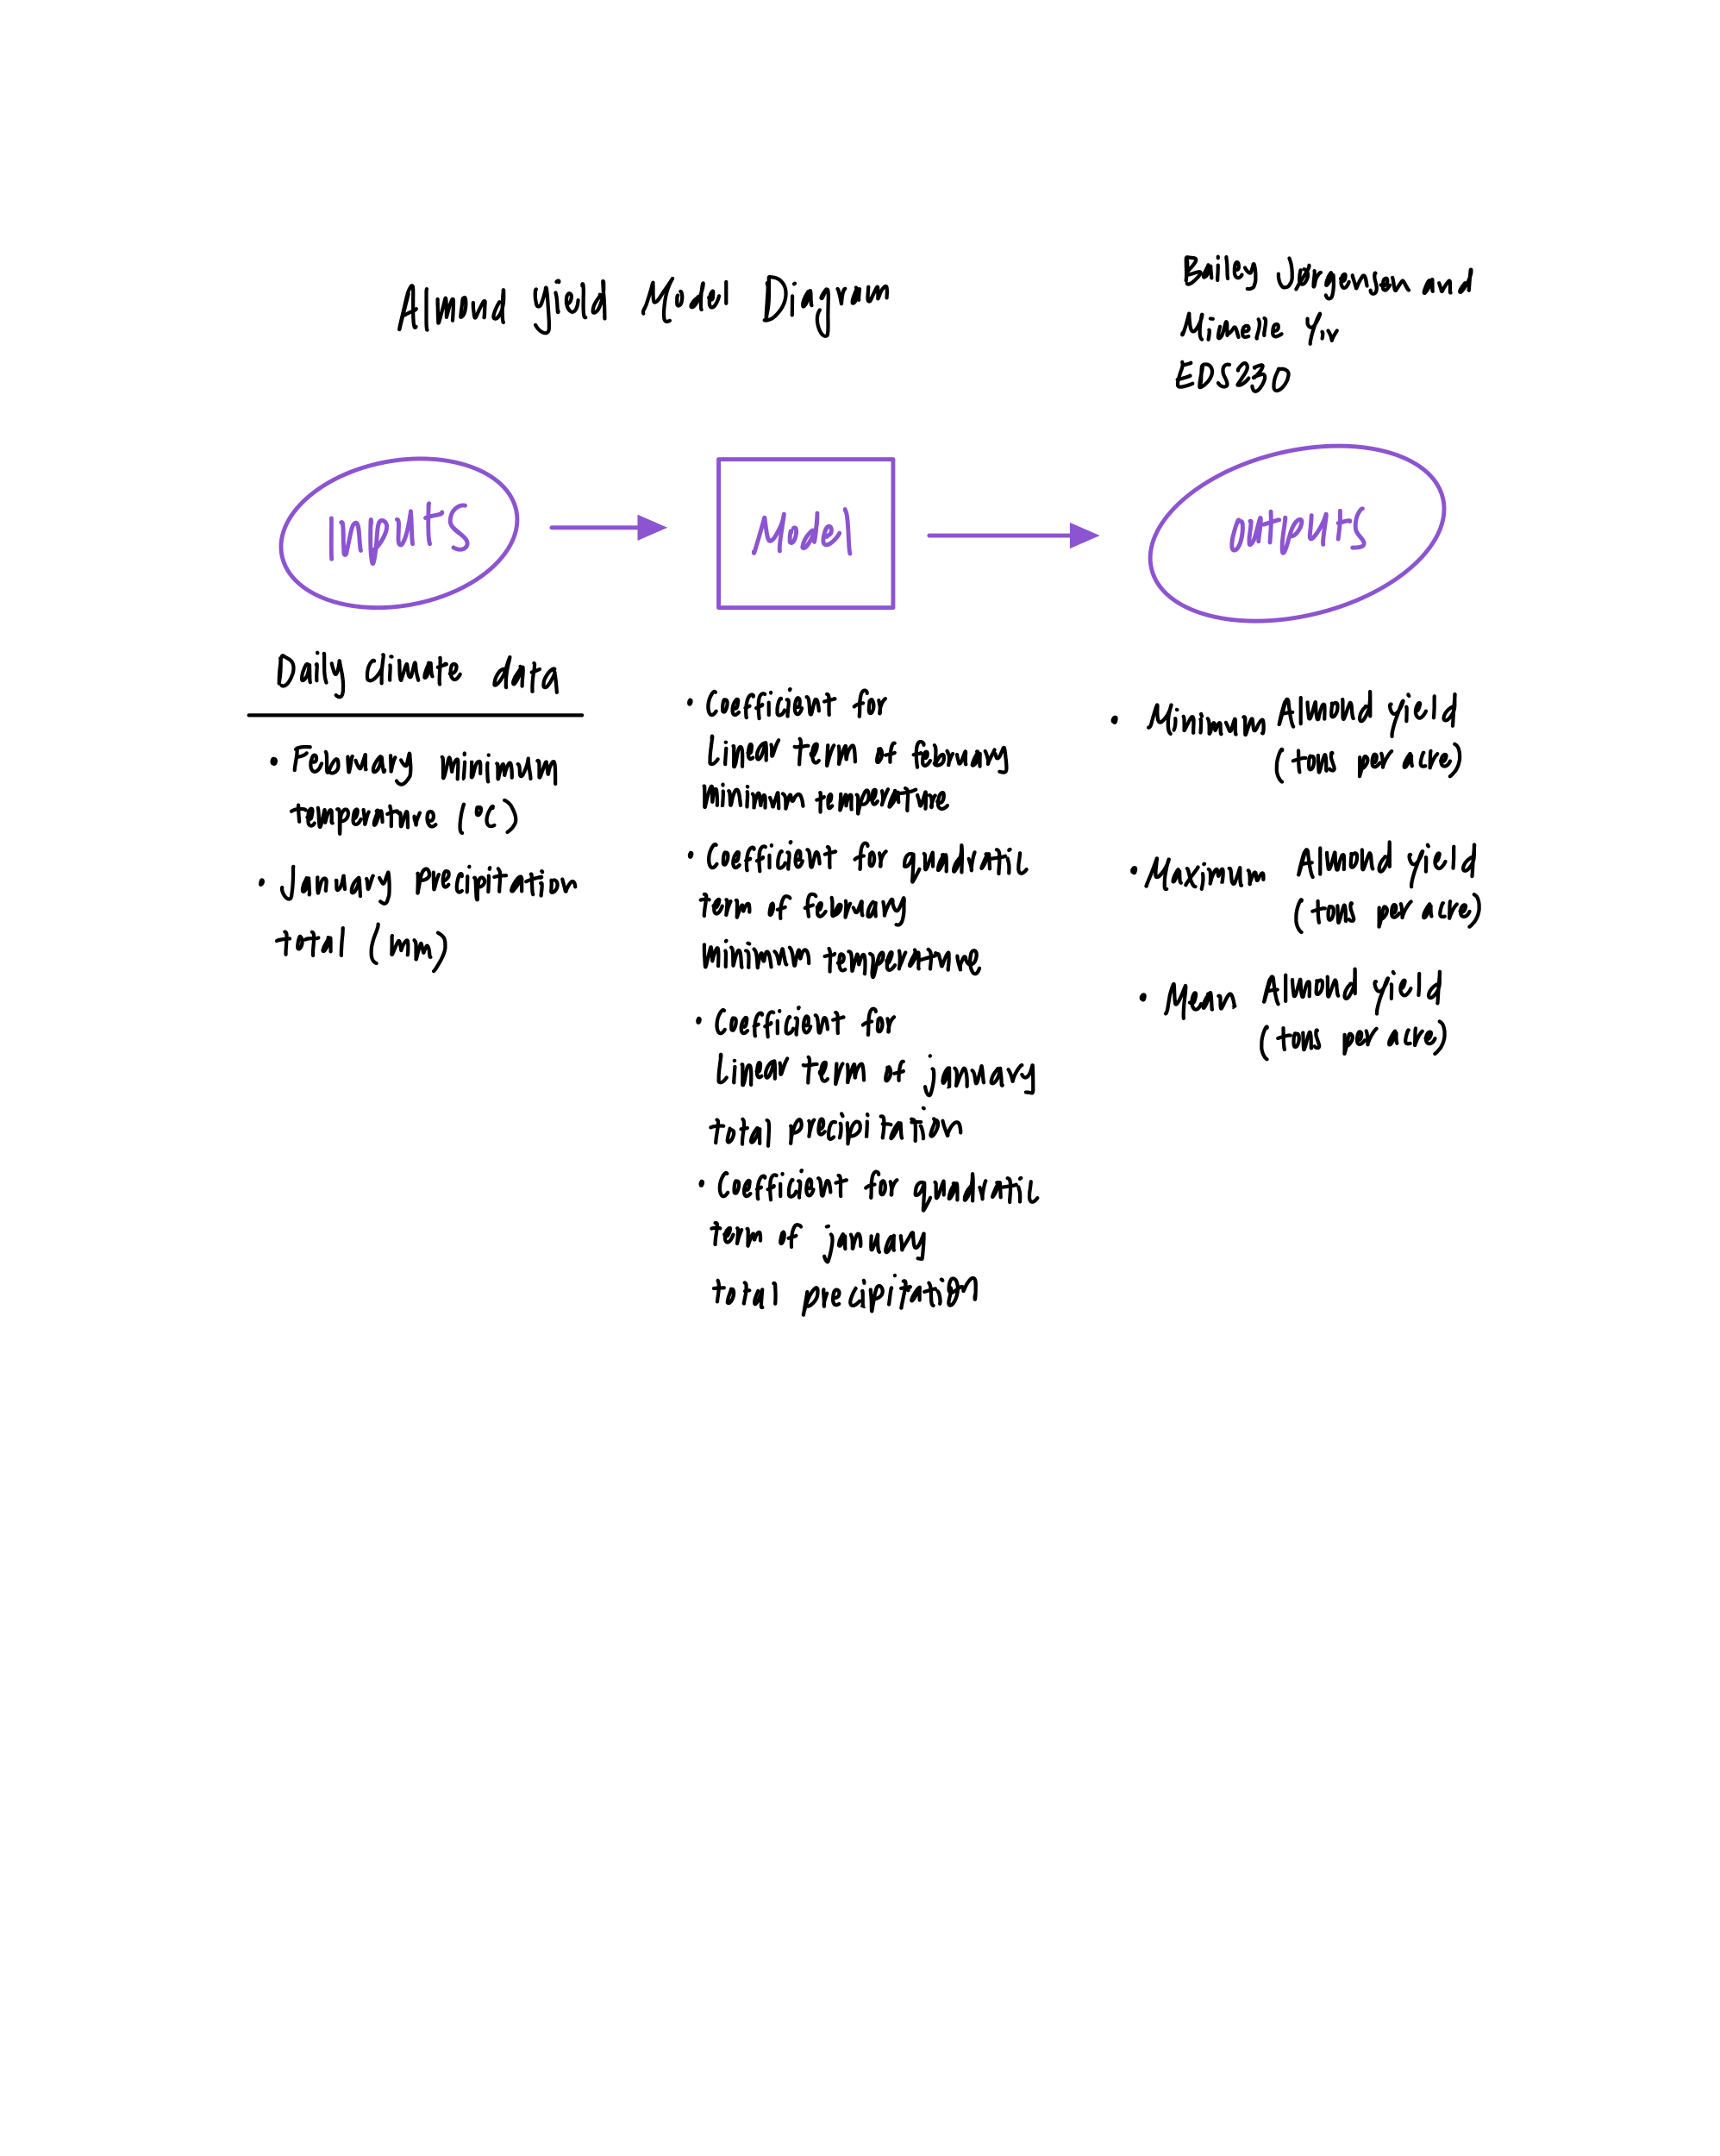 Almond yield Model Diagram
Bailey Jørgensen and
Mimelle Yiv
EDS230
Inputs
Model
outputs
Daily climate data
• February minimum
temperature (°C)
• January precipitation
total (mm)
• Coefficient for
Linear term of february
minimum temperature
• Coefficient for quadratic
term of february
minimum temperature
• Coefficient for
Linear term of january
total precipitation
• Coefficient for quadratic
term of january
total precipitation
• Minimum Almond yield
(tons per acre)
• Maximum Almond yield
(tons per acre)
• Mean Almond yield
(tons per acre)